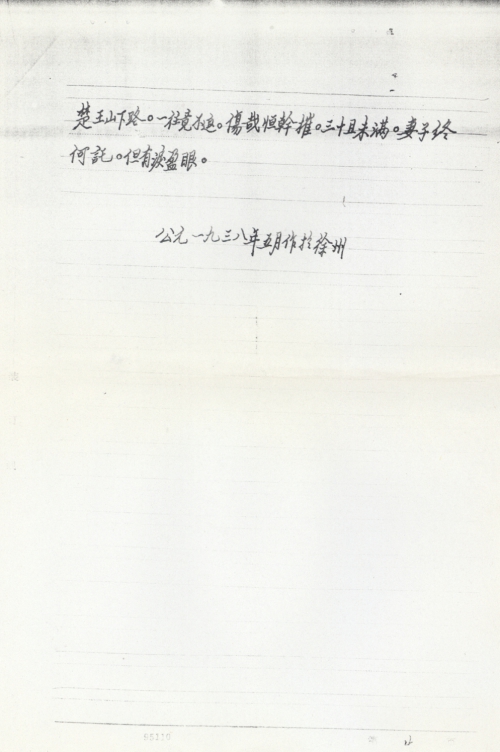 楚王山下路。一往竟不返。傷哉恒幹摧。三十且未满。妻子终
何託。但有淚盈眼。
公元一九三八年五月作於徐州